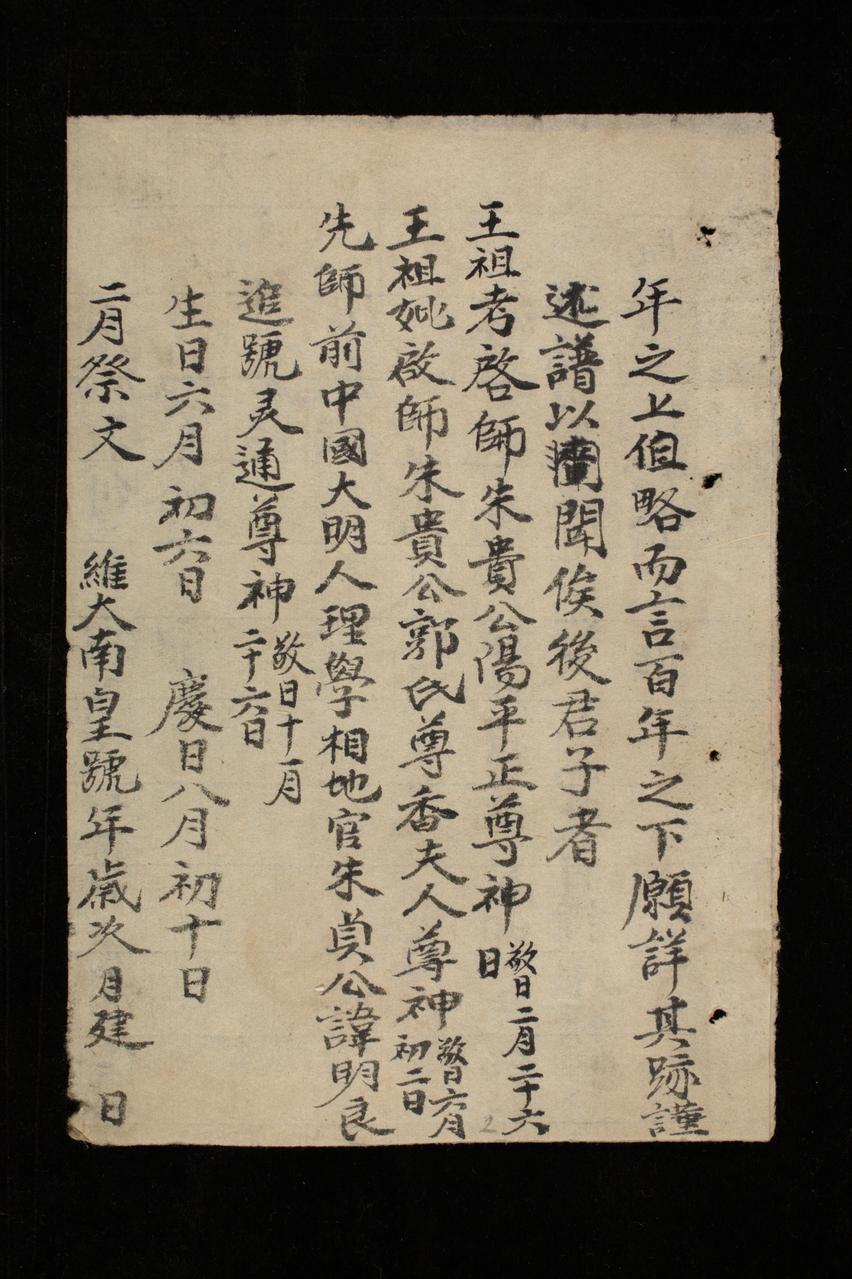 年之上伹略而言百年之下願詳其跡謹
述譜以聞俟後君子者
王祖考啓師朱貴公陽平正尊神 敬日二月二十六日
王祖妣啟師朱貴公郭氏尊香夫人尊神 敬日六月初二日
先師前中國大明人理學相地官朱貞公諱明良
進號灵通尊神 敬日十一月二十六日
生日六月初六日 慶日八月初十日
二月祭文 維大南皇號年歲次月建 日
2